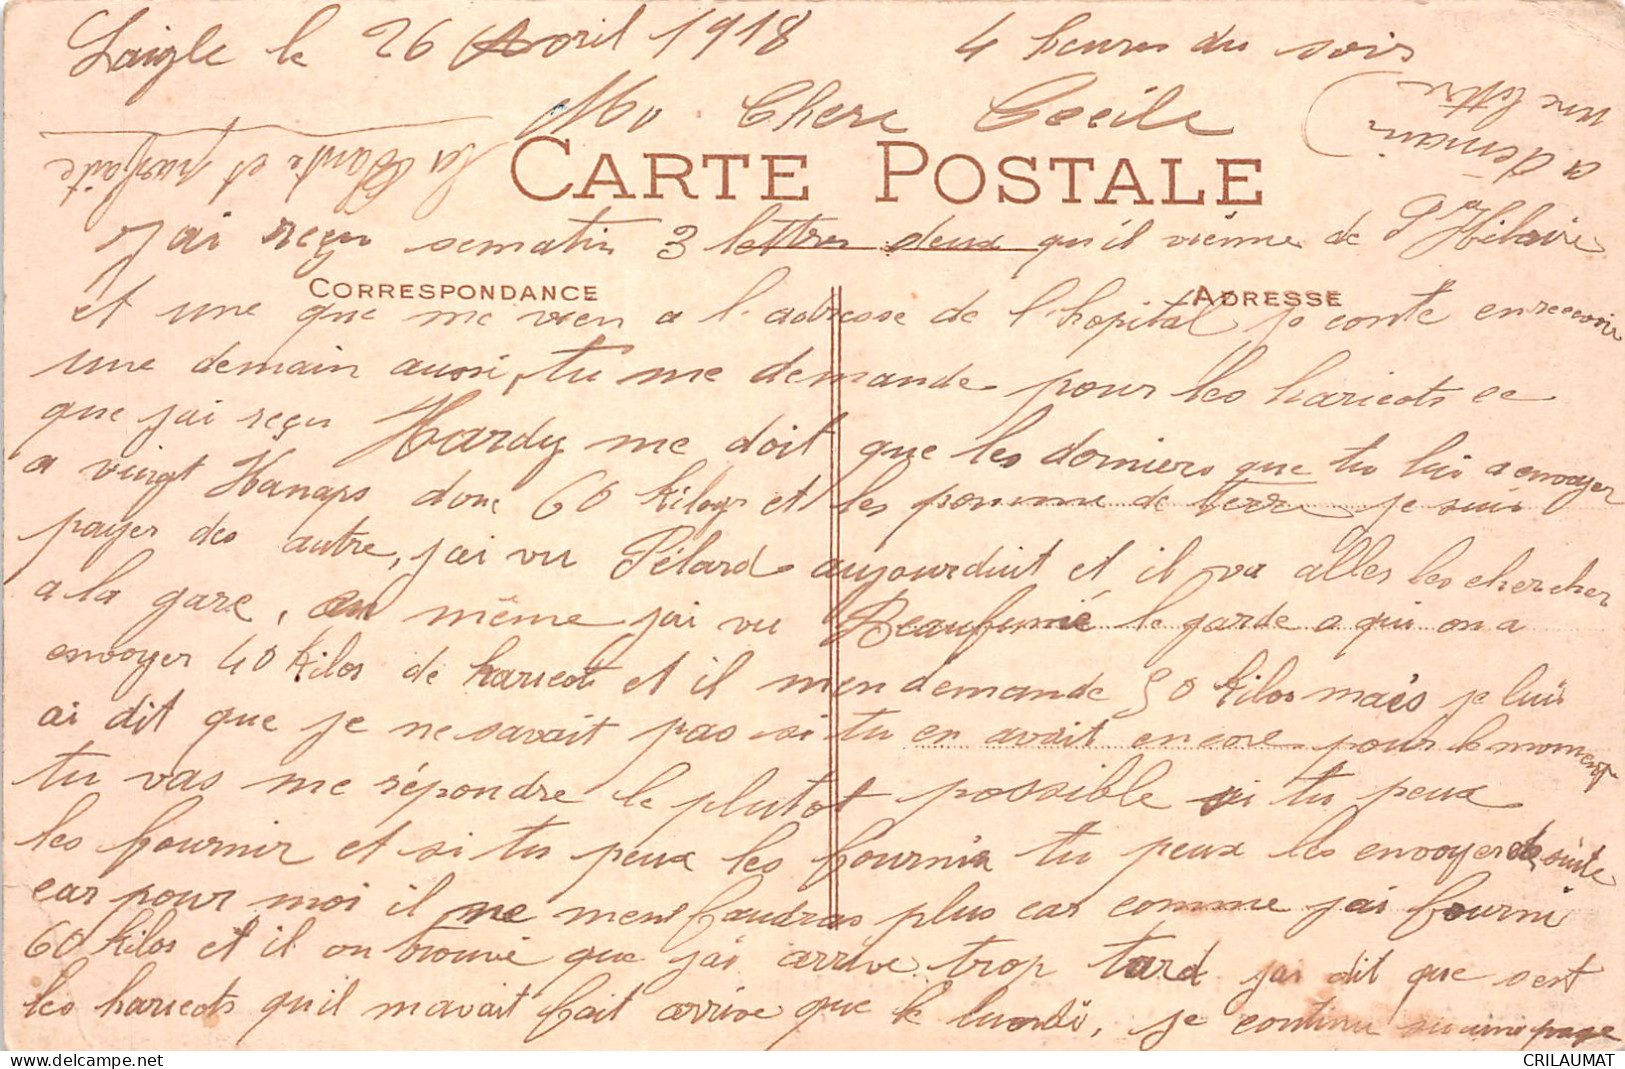 Laigle le 26 Avril 1918 4 heures du soir
Ma Chere Cecile
a demain
une lettre
CARTE POSTALE
la Santé et parfaite
J'ai reçu sematin 3 lettres deux qu'il vienne de St Hilaire
CORRESPONDANCE ADRESSE
et une que me vien a l'adresse de l'hopital je conte en recevoir
une demain aussi, tu me demande pour les haricots ce
que jai reçu Hardy me doit que les derniers que tu lui a envoyer
a vingt Hanaps donc 60 kilogr et les pomme de terre je suis
payer des autre, jai vu Pélard aujourdhuit et il va aller les chercher
a la gare, en même jai vu Beaufumé le garde a qui on a
envoyer 40 kilos de haricots et il men demande 50 kilos mais je luis
ai dit que je ne savait pas si tu en avait encore pour le moment
tu vas me répondre le plutot possible si tu peux
les fournir et si tu peux les fournir tu peux les envoyer de suite
car pour moi il ne ment faudras plus car comme jai fourni
60 kilos et il on trouvé que jai arrive trop tard jai dit que sest
les haricots quil mavait fait arrive que le lundi, je continu sur une page
CRILAUMAT